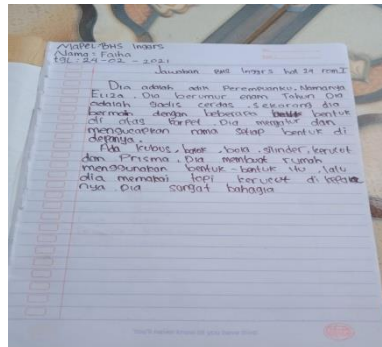 Mapel: BHS Inggrs
Nama = Faiha
tgl: 24-02-2021
Jawaban BHS Inggrs hal 24 rom I
Dia adalah adik Perempuanku. Namanya
Eliza. Dia berumur enam Tahun Dia
adalah gadis cerdas. sekarang dia
bermain dengan beberapa bentuk
di atas karpet. Dia mengatur dan
mengucapkan nama setiap bentuk di
depanya.
Ada kubus, balok, bola, silinder, kerucut
dan Prisma. Dia membuat rumah
menggunakan bentuk-bentuk itu, lalu
dia memakai topi kerucut di kepala
nya. Dia sangat bahagia